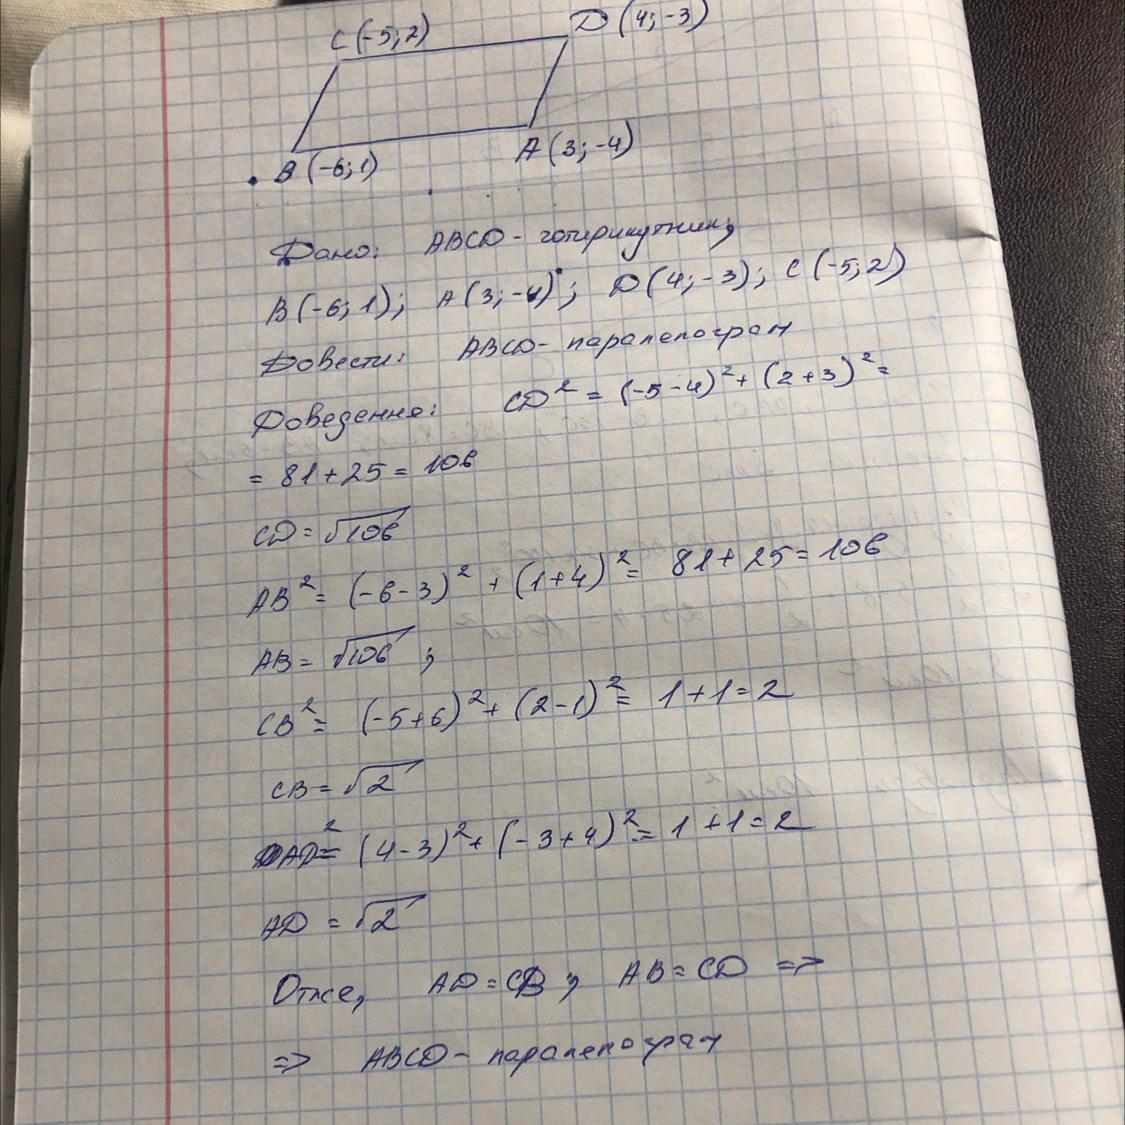 C (-5; 2)
D (4; -3)
B (-6; 1)
A (3; -4)
Дано: ABCD - чотирикутник,
B (-6; 1); A (3; -4); D (4; -3); C (-5; 2)
Довести: ABCD - паралелограм
Доведення: CD² = (-5-4)² + (2+3)² =
= 81 + 25 = 106
CD = √106
AB² = (-6-3)² + (1+4)² = 81 + 25 = 106
AB = √106 ,
CB² = (-5+6)² + (2-1)² = 1 + 1 = 2
CB = √2
AD² = (4-3)² + (-3+4)² = 1 + 1 = 2
AD = √2
Отже, AD = CB , AB = CD =>
=> ABCD - паралелограм